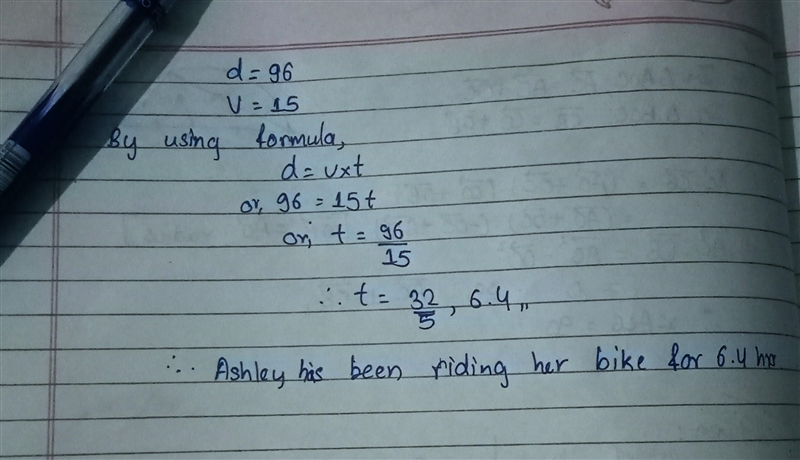 d = 96
v = 15
By using formula,
d = v×t
or, 96 = 15t
or, t = 96/15
∴ t = 32/5, 6.4,,
∴ Ashley has been riding her bike for 6.4 hrs